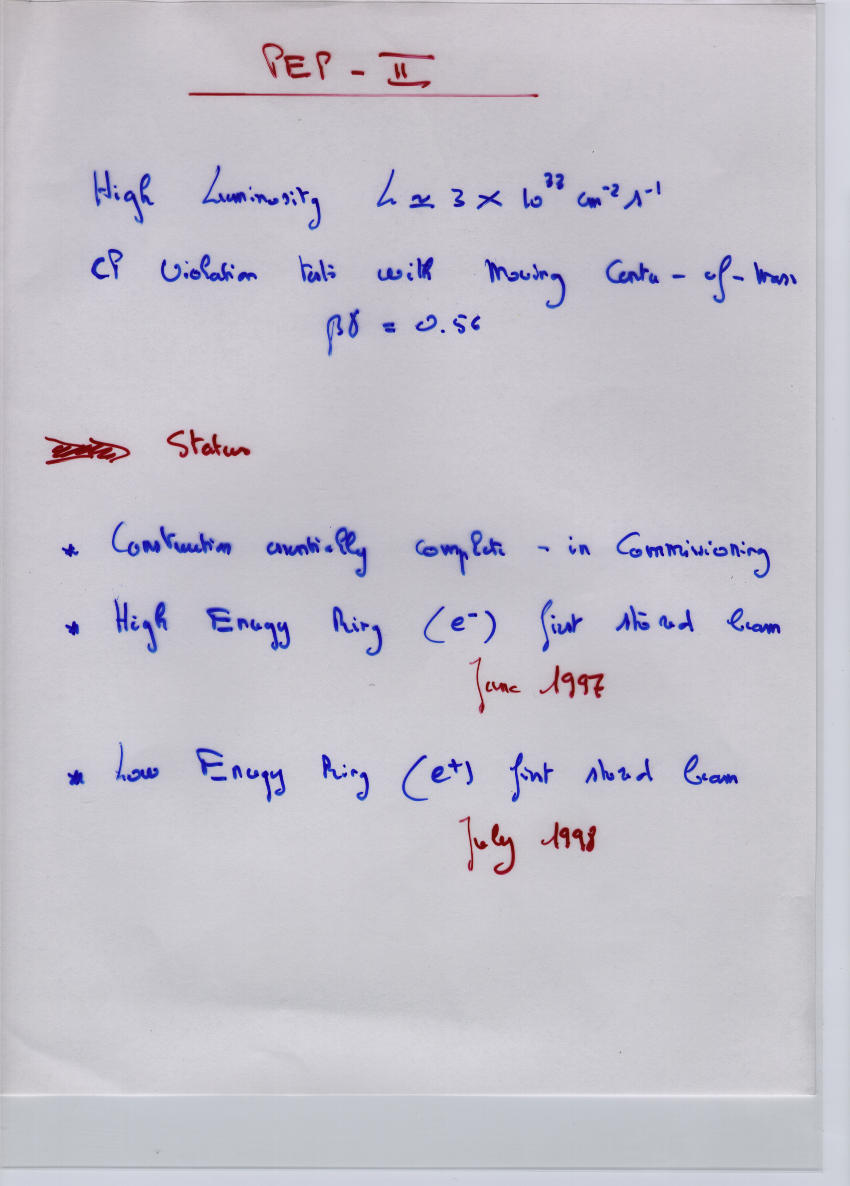 PEP - II
High Luminosity L ≃ 3 × 10³³ cm⁻² s⁻¹
CP Violation tests with Moving Center - of - Mass
βγ = 0.56
Status
* Construction essentially complete - in Commissioning
* High Energy Ring (e⁻) first stored beam
June 1997
* Low Energy Ring (e⁺) first stored beam
July 1998